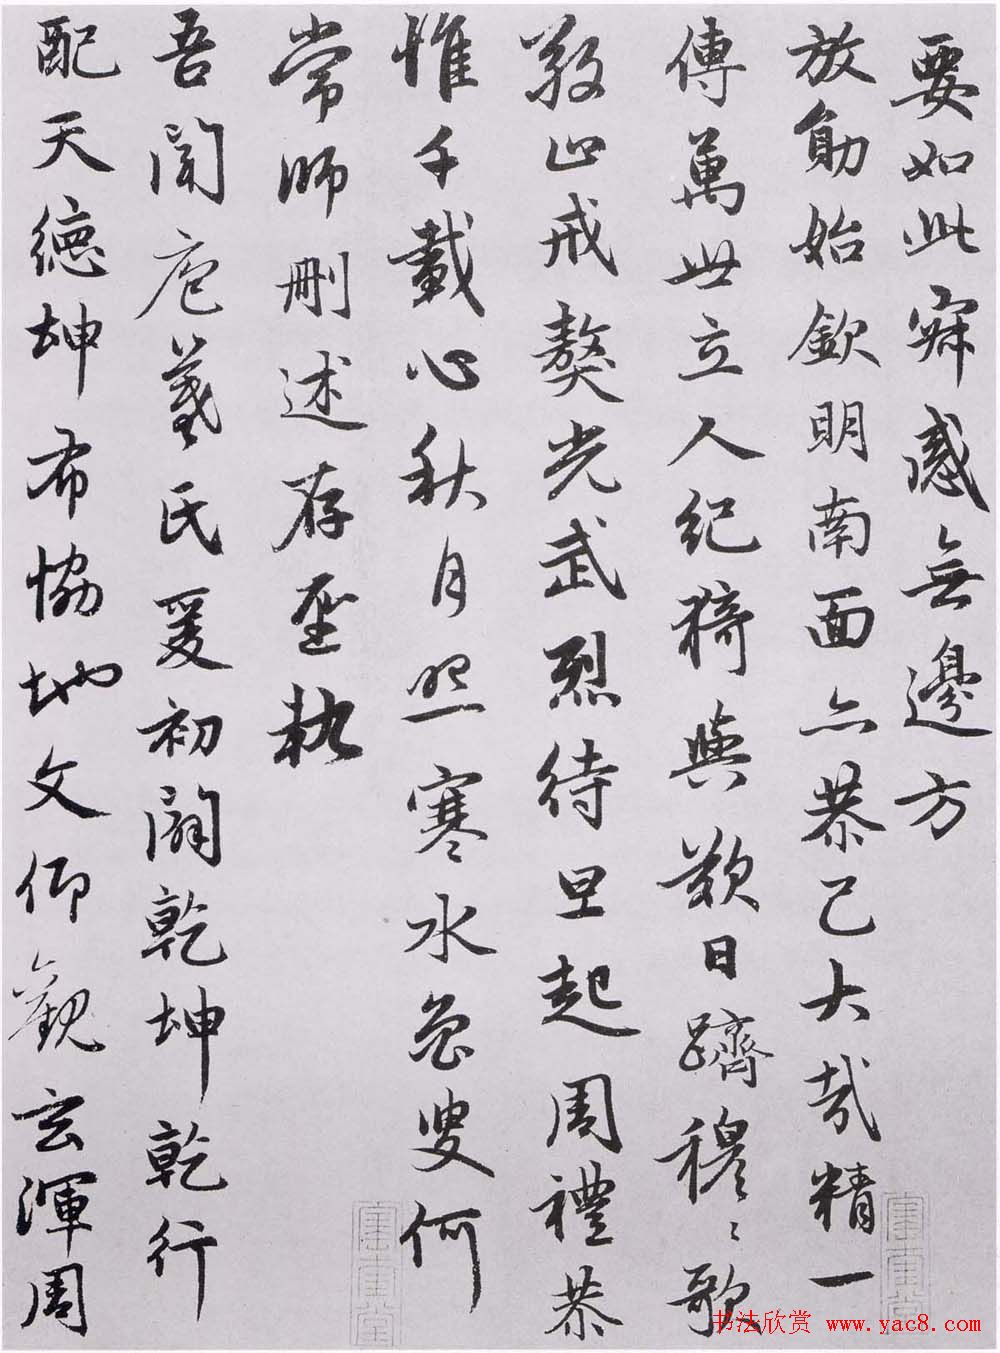 要如此寂感無邊方
放勛始欽明南面亦恭己大哉精一
傳萬世立人紀猗與歎日躋穆々歌
敬止戒獒光武烈待旦起周禮恭
惟千載心秋月照寒水魯叟何
常師刪述存聖軌
吾聞庖羲氏爰初闢乾坤乾行
配天德坤布協地文仰觀玄渾周
书法欣赏 www.yac8.com